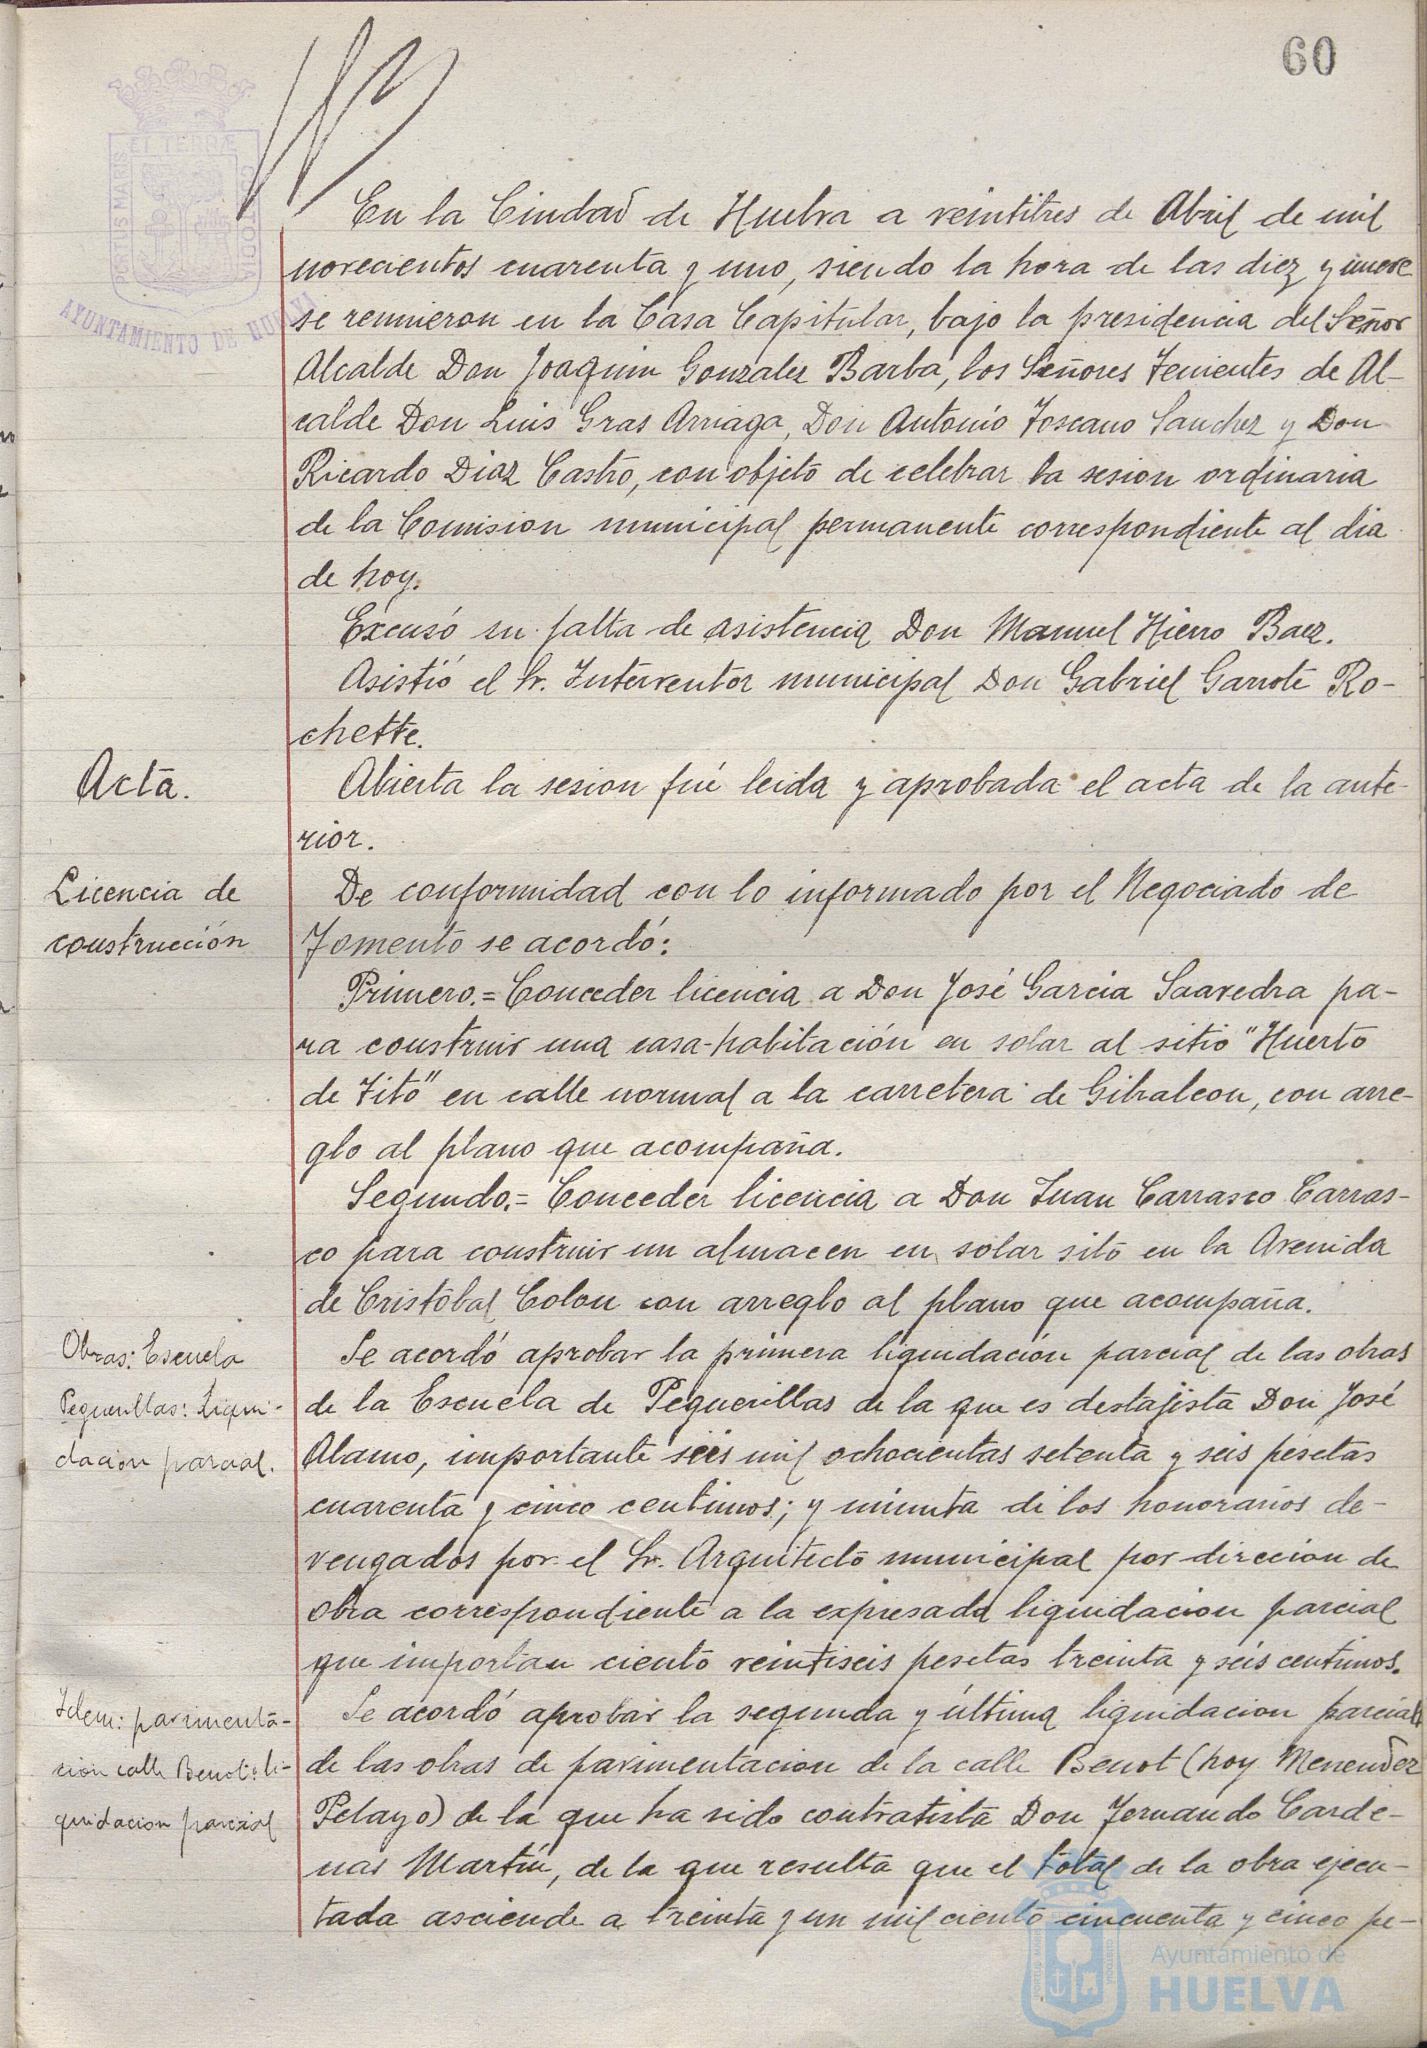 60
PORTUS MARIS ET TERRÆ CUSTODIA
AYUNTAMIENTO DE HUELVA
En la Ciudad de Huelva a veintitres de Abril de mil
novecientos cuarenta y uno, siendo la hora de las diez y nueve
se reunieron en la Casa Capitular, bajo la presidencia del Señor
Alcalde Don Joaquin Gonzalez Barba, los Señores Tenientes de Al-
calde Don Luis Gras Arriaga, Don Antonio Toscano Sanchez y Don
Ricardo Diaz Castro, con objeto de celebrar la sesion ordinaria
de la Comision municipal permanente correspondiente al dia
de hoy.
Excusó su falta de asistencia Don Manuel Hierro Baez.
Asistió el Sr. Interventor municipal Don Gabriel Garrote Ro-
chette.
Acta.
Abierta la sesion fué leida y aprobada el acta de la ante-
rior.
Licencia de
construcción
De conformidad con lo informado por el Negociado de
Fomento se acordó:
Primero.= Conceder licencia a Don José Garcia Saavedra pa-
ra construir una casa-habitación en solar al sitio "Huerto
de Tito" en calle normal a la carretera de Gibraleon, con arre-
glo al plano que acompaña.
Segundo.= Conceder licencia a Don Juan Carrasco Carras-
co para construir un almacen en solar sito en la Avenida
de Cristobal Colon con arreglo al plano que acompaña.
Obras: Escuela
Pequeñillas: Liqui-
dacion parcial.
Se acordó aprobar la primera liquidación parcial de las obras
de la Escuela de Peguerillas de la que es destajista Don José
Alamo, importante seis mil ochocientas setenta y seis pesetas
cuarenta y cinco centimos; y minuta de los honorarios de-
vengados por el Sr. Arquitecto municipal por direcion de
obra correspondiente a la expresada liquidacion parcial
que importan ciento veintiseis pesetas treinta y seis centimos.
Idem: pavimenta-
cion calle Benot: li-
quidacion parcial
Se acordó aprobar la segunda y última liquidacion parcial
de las obras de pavimentacion de la calle Benot (hoy Menendez
Pelayo) de la que ha sido contratista Don Fernando Carde-
nas Martín, de la que resulta que el total de la obra ejecu-
tada asciende a treinta y un mil ciento cincuenta y cinco pe-
Ayuntamiento de
HUELVA